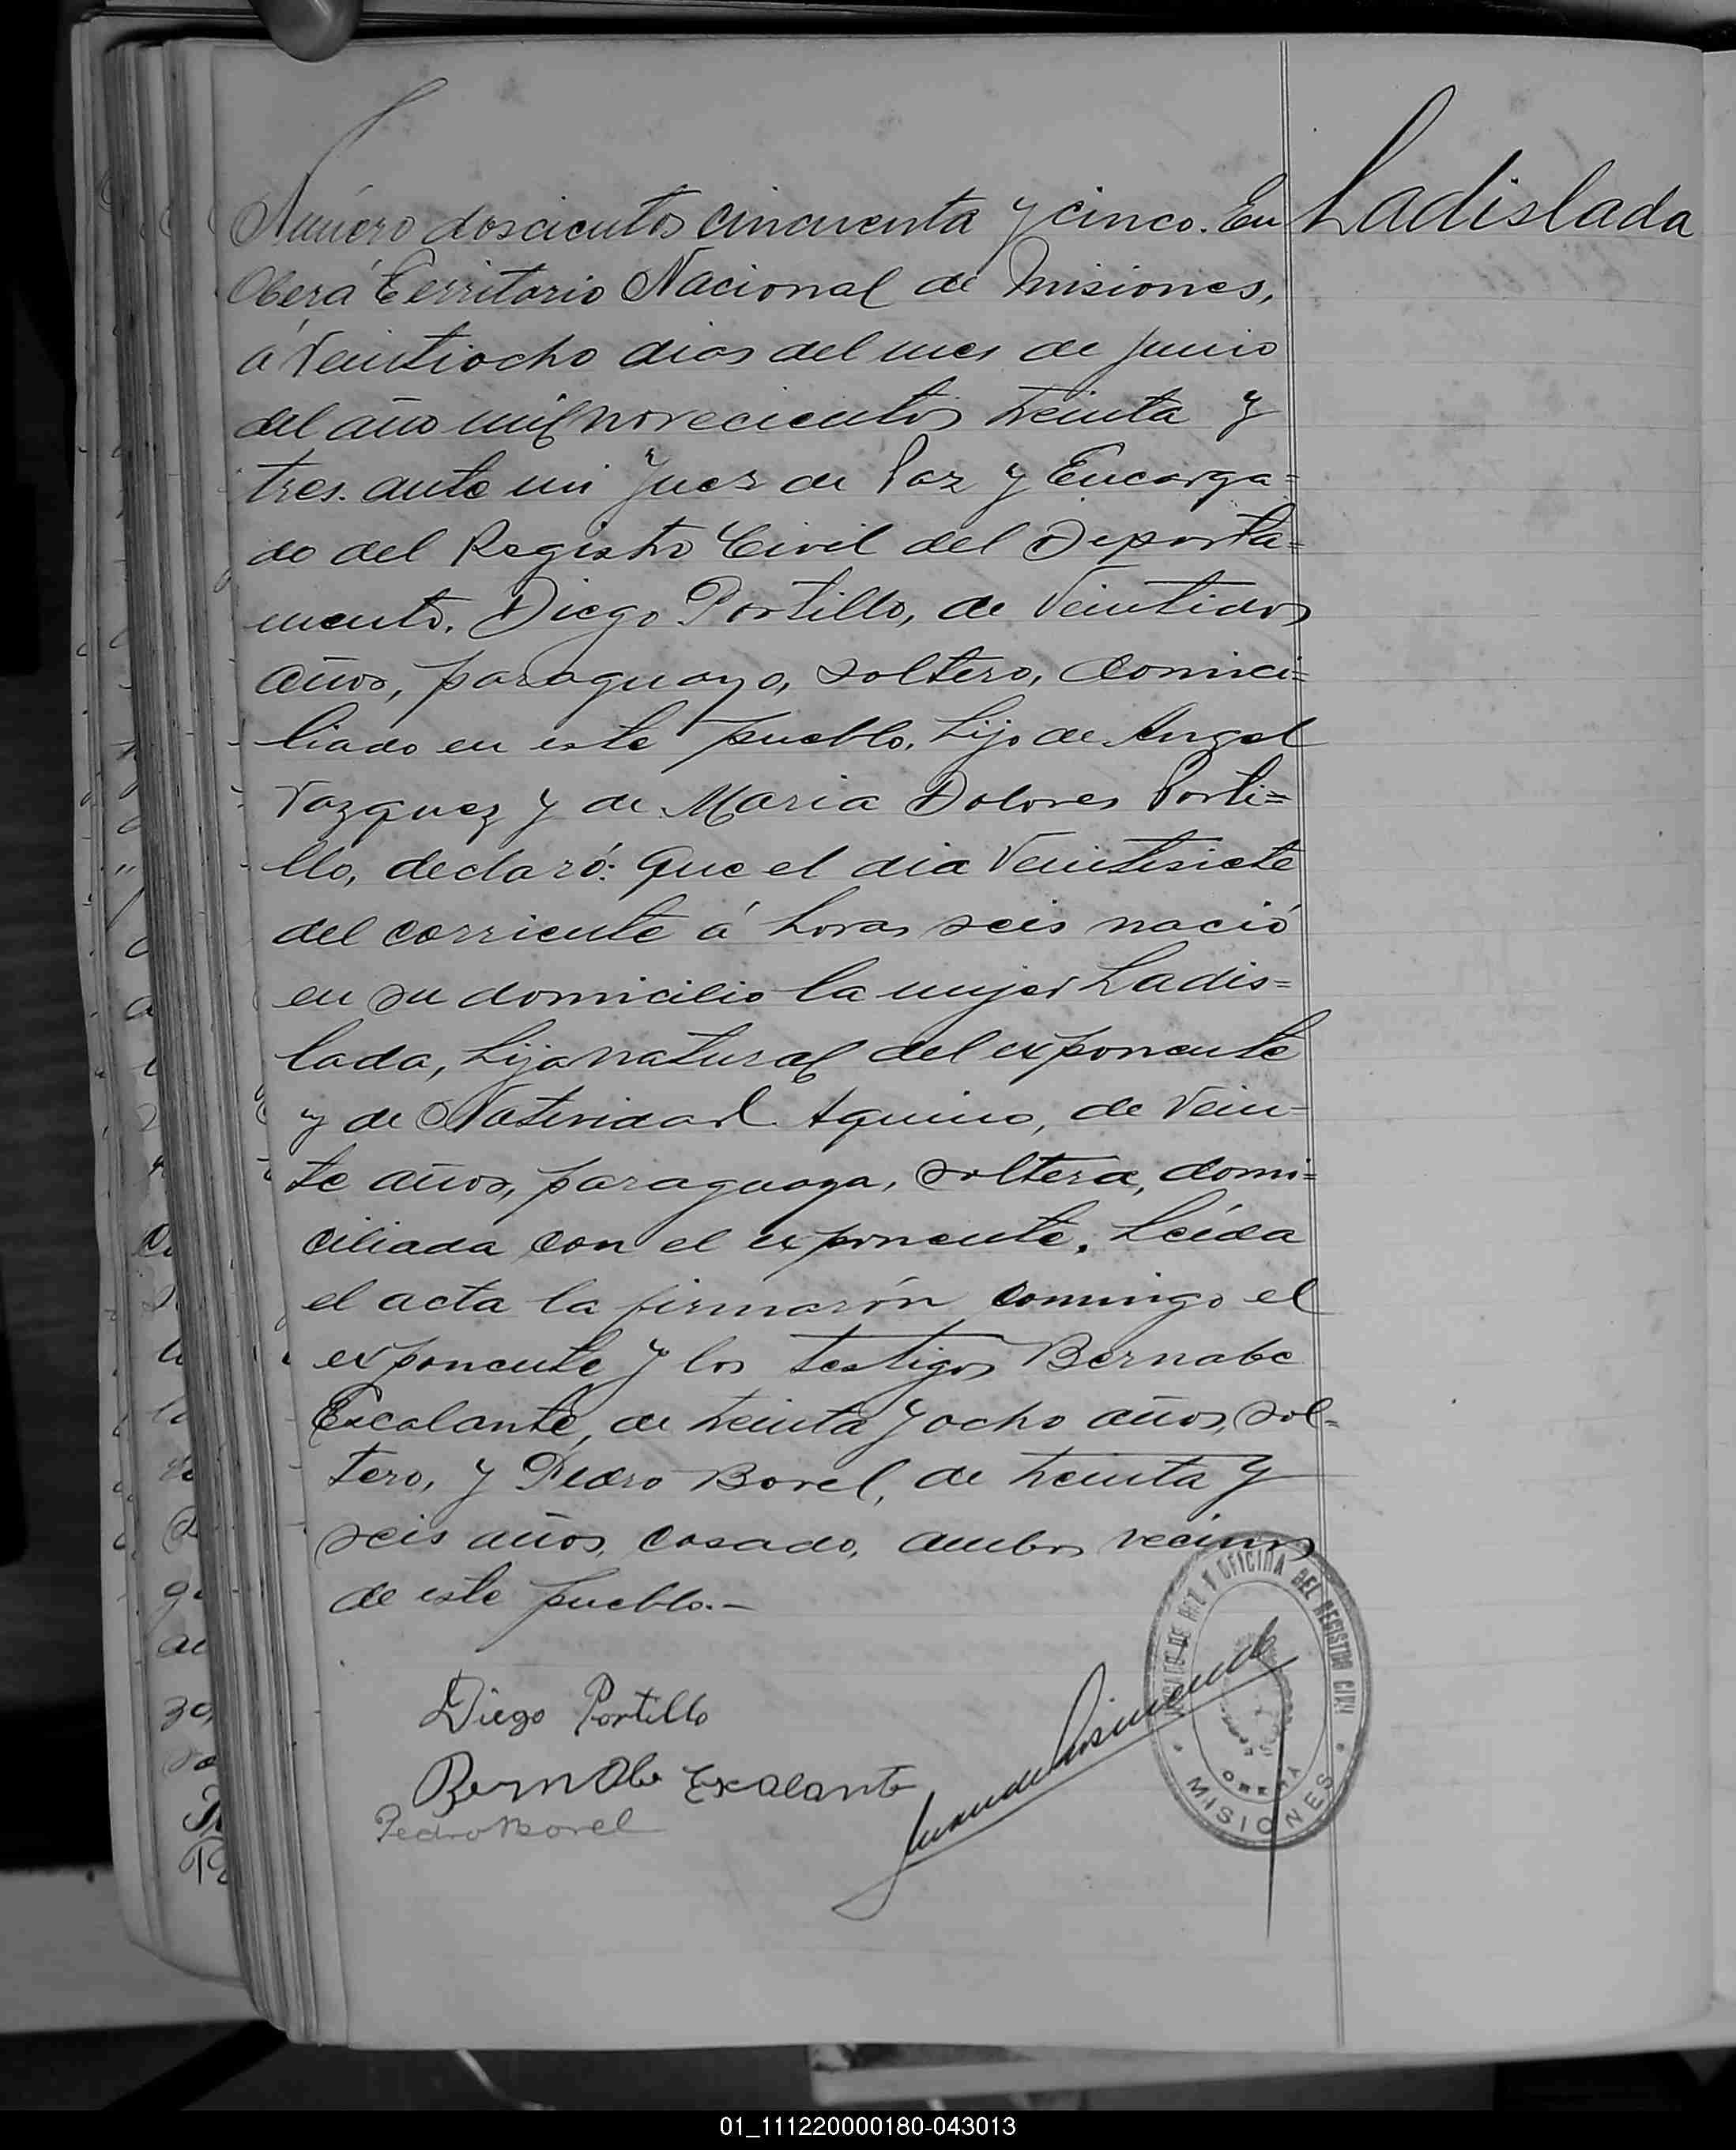 Ladislada
Número doscientos cincuenta y cinco. En
Oberá Territorio Nacional de Misiones,
á Veintiocho dias del mes de junio
del año mil novecientos treinta y
tres. ante mi Juez de Paz y Encarga=
do del Registro Civil del Departa=
mento. Diego Portillo, de Veintidos
años, paraguayo, soltero, domici=
liado en este pueblo. hijo de Angel
Vazquez y de Maria Dolores Porti=
llo, declaró: Que el dia Veintisiete
del corriente á horas seis nació
en su domicilio la mujer Ladis=
lada, hija natural del exponente
y de Natividad Aquino, de Vein-
te años, paraguaya, soltera, domi=
ciliada con el exponente. Leída
el acta la firmarón conmigo el
exponente y los testigos Bernabe
Escalante, de treinta y ocho años, sol=
tero, y Pedro Borel, de treinta y
seis años, casado, ambos vecinos
de este pueblo.-
Diego Portillo
Bernabe Escalante
Pedro Borel
JUZGADO DE PAZ Y OFICINA DEL REGISTRO CIVIL
OBERA
MISIONES
01_111220000180-043013